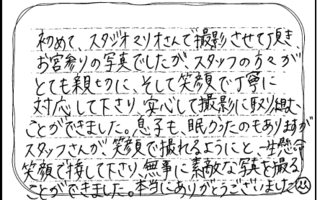 初めて、スタジオマリオさんで撮影させて頂き
お宮参りの写真でしたが、スタッフの方々が
とても親切に、そして笑顔で丁寧に
対応して下さり、安心して撮影に取り組む
ことができました。息子も、眠くったのもありますが
スタッフさんが、笑顔で撮れるようにと、一生懸命
笑顔で接して下さり、無事に素敵な写真を撮る
ことができました。本当にありがとうございました